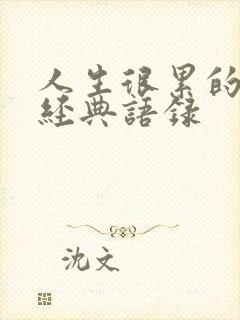 人生很累的
經典語錄
沈文